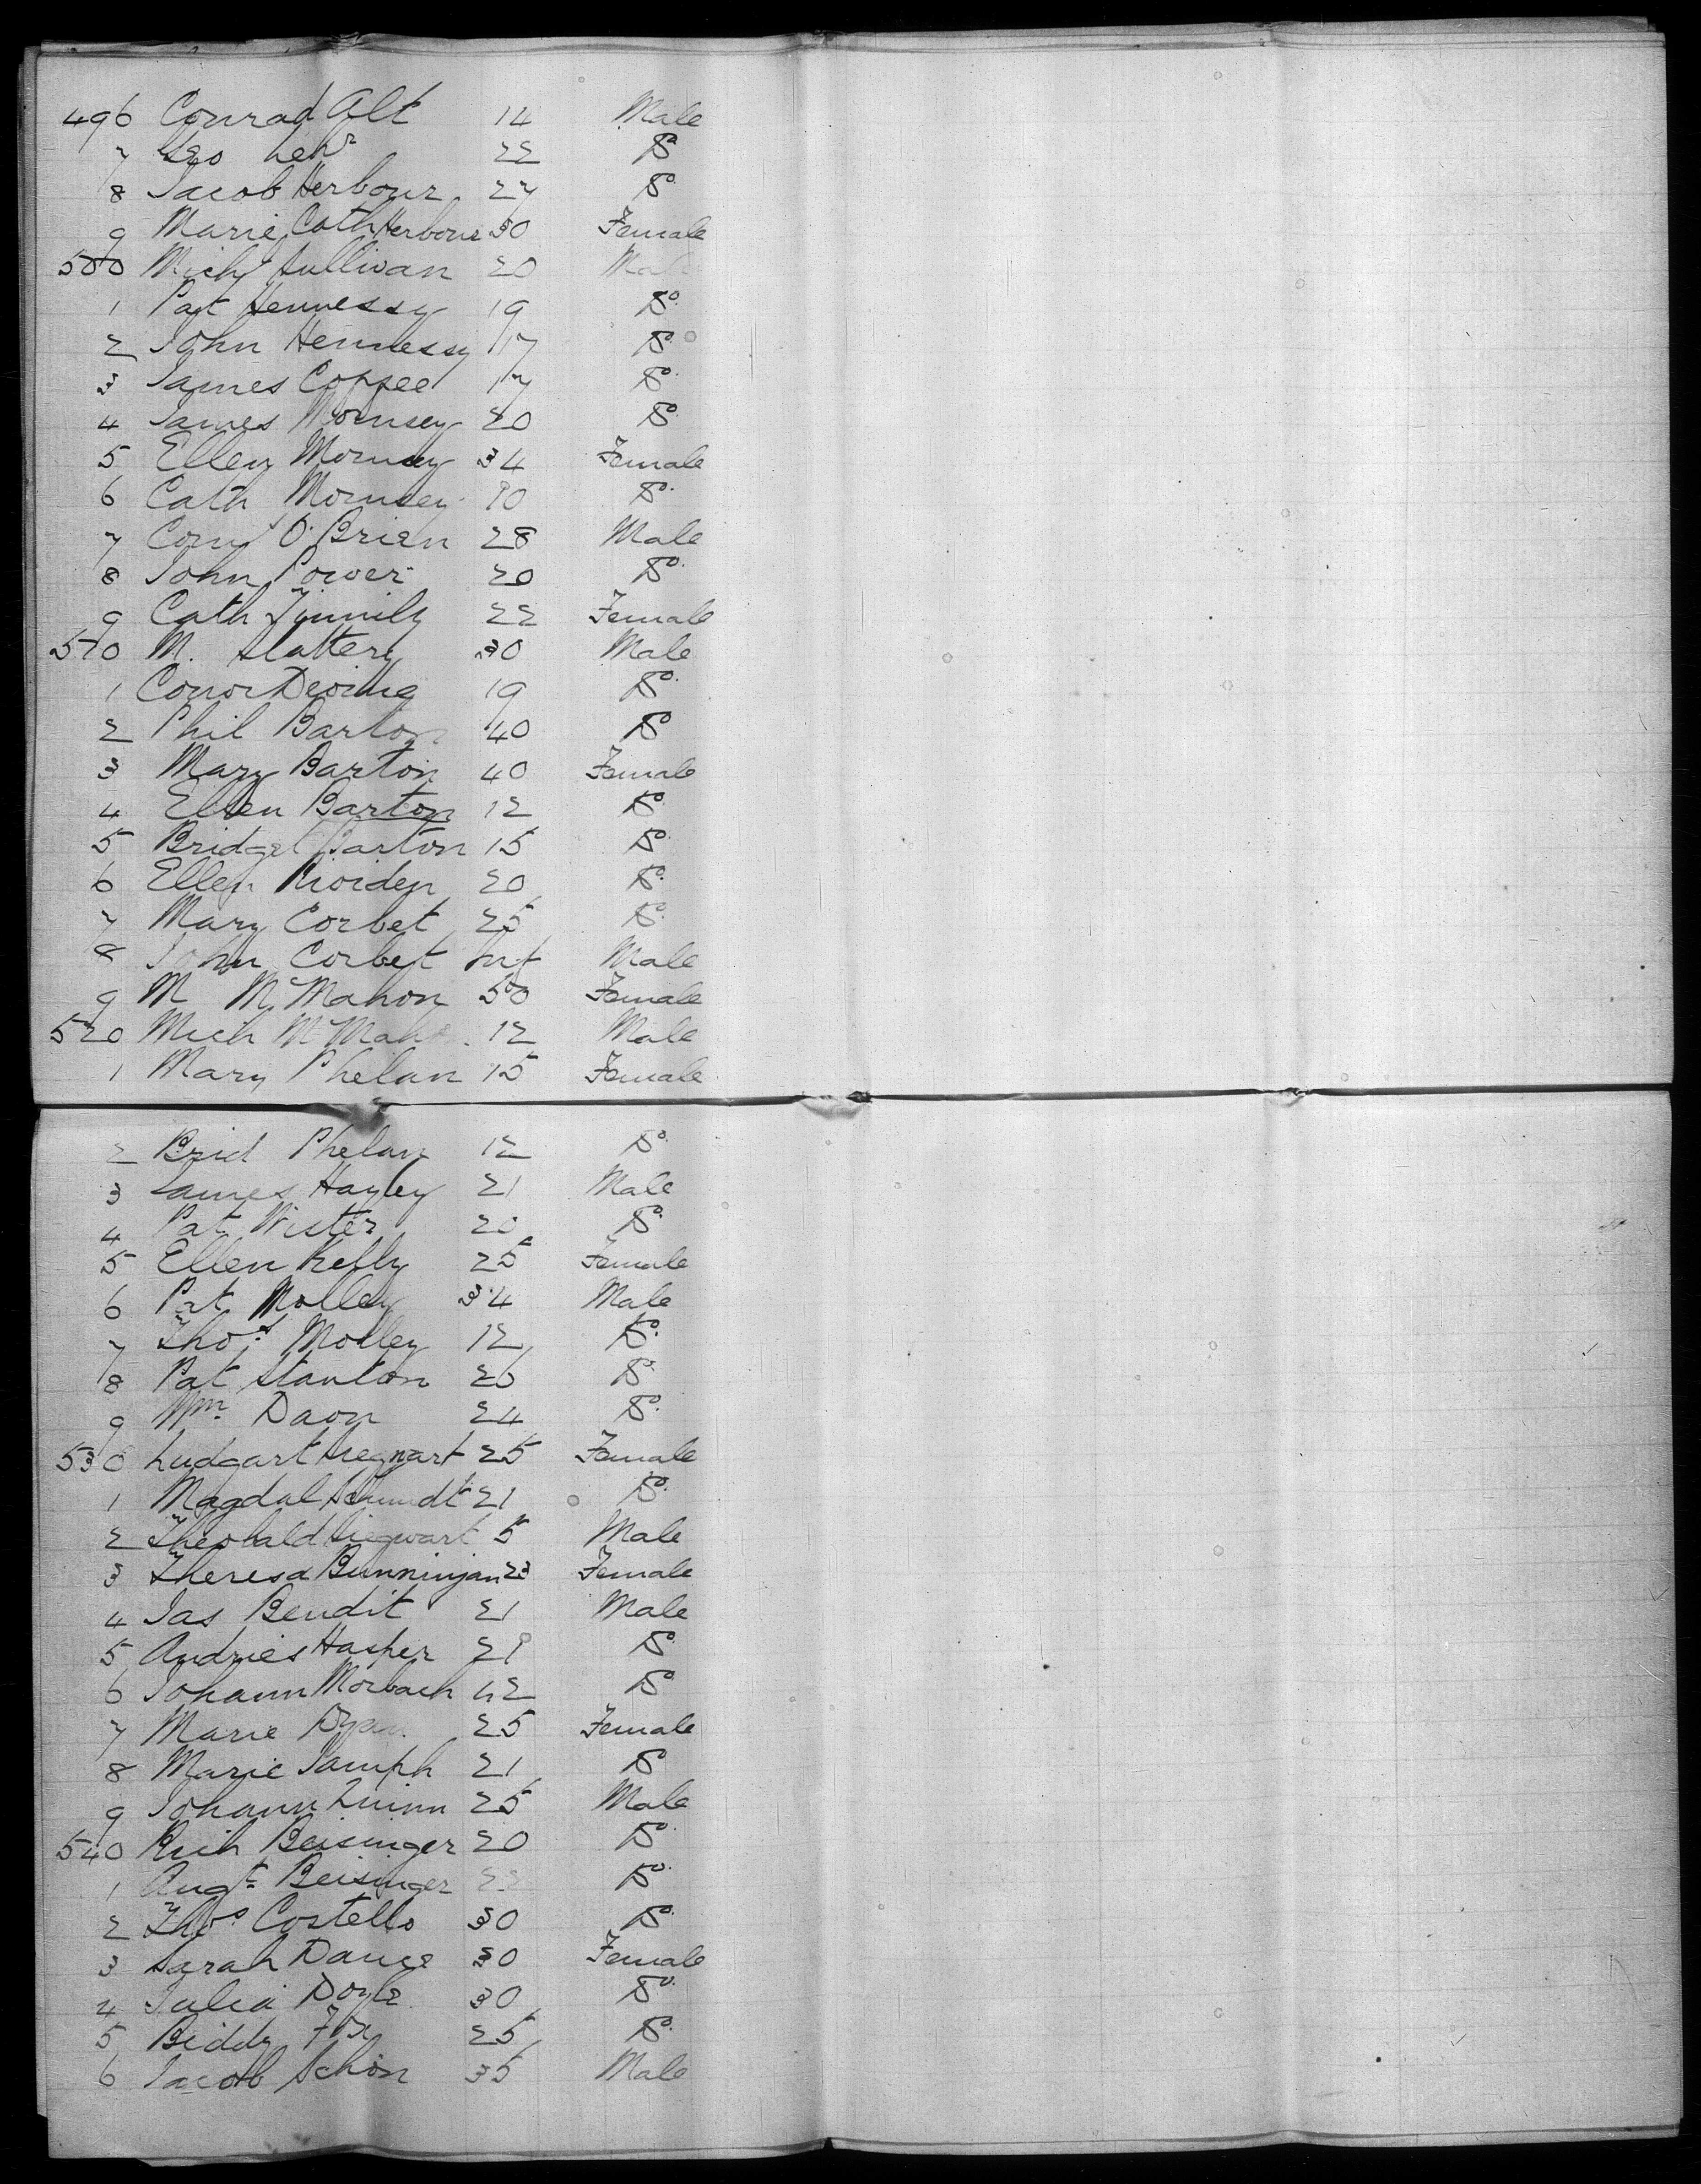 496 Conrad Alt 14 Male
7 Geo Lehr 22 Do
8 Jacob Herbour 27 Do
9 Marie Cath Herbour 30 Female
500 Mich Sullivan 20 Male
1 Pat Hennessy 19 Do
2 John Hennessy 17 Do
3 James Coppee 17 Do
4 James Mornsey 20 Do
5 Ellen Mornsey 34 Female
6 Cath Mornsey 10 Do
7 Corn O'Brien 28 Male
8 John Power 20 Do
9 Cath 22 Female
510 M. Slattery 30 Male
1 Conor 19 Do
2 Phil Barton 40 Do
3 Mary Barton 40 Female
4 Ellen Barton 12 Do
5 Bridget Barton 15 Do
6 Ellen Riorden 20 Do
7 Mary Corbet 25 Do
8 John Corbet Inf Male
9 M McMahon 50 Female
520 Mich McMahon 12 Male
1 Mary Phelan 15 Female
2 Brid Phelan 12 Do
3 James Hayley 21 Male
4 Pat Wister 20 Do
5 Ellen Kelly 25 Female
6 Pat Molley 34 Male
7 Thos Molley 12 Do
8 Pat Stanton 20 Do
9 Wm Daon 24 Do
530 Ludgart Siegwart 25 Female
1 Magdal Schmidt 21 Do
2 Theobald Siegwart 5 Male
3 Theresa Bunninjan 23 Female
4 Jas Bendit 21 Male
5 Andries Hasper 21 Do
6 Johann Morbach 42 Do
7 Marie 25 Female
8 Marie Jamph 21 Do
9 Johann Quinn 25 Male
540 Rich Beisinger 20 Do
1 Augt Beisinger 22 Do
2 Thos Costello 30 Do
3 Sarah Dance 30 Female
4 Julia Doyle 30 Do
5 Biddy Fox 25 Do
6 Jacob Schön 35 Male